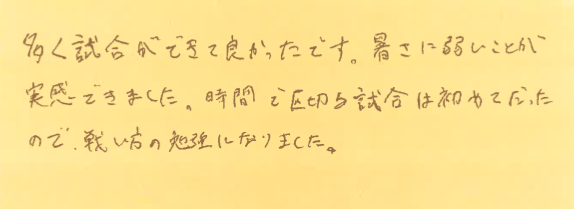 多く試合ができて良かったです。暑さに弱いことが
実感できました。時間で区切る試合は初めてだった
ので、戦い方の勉強になりました。